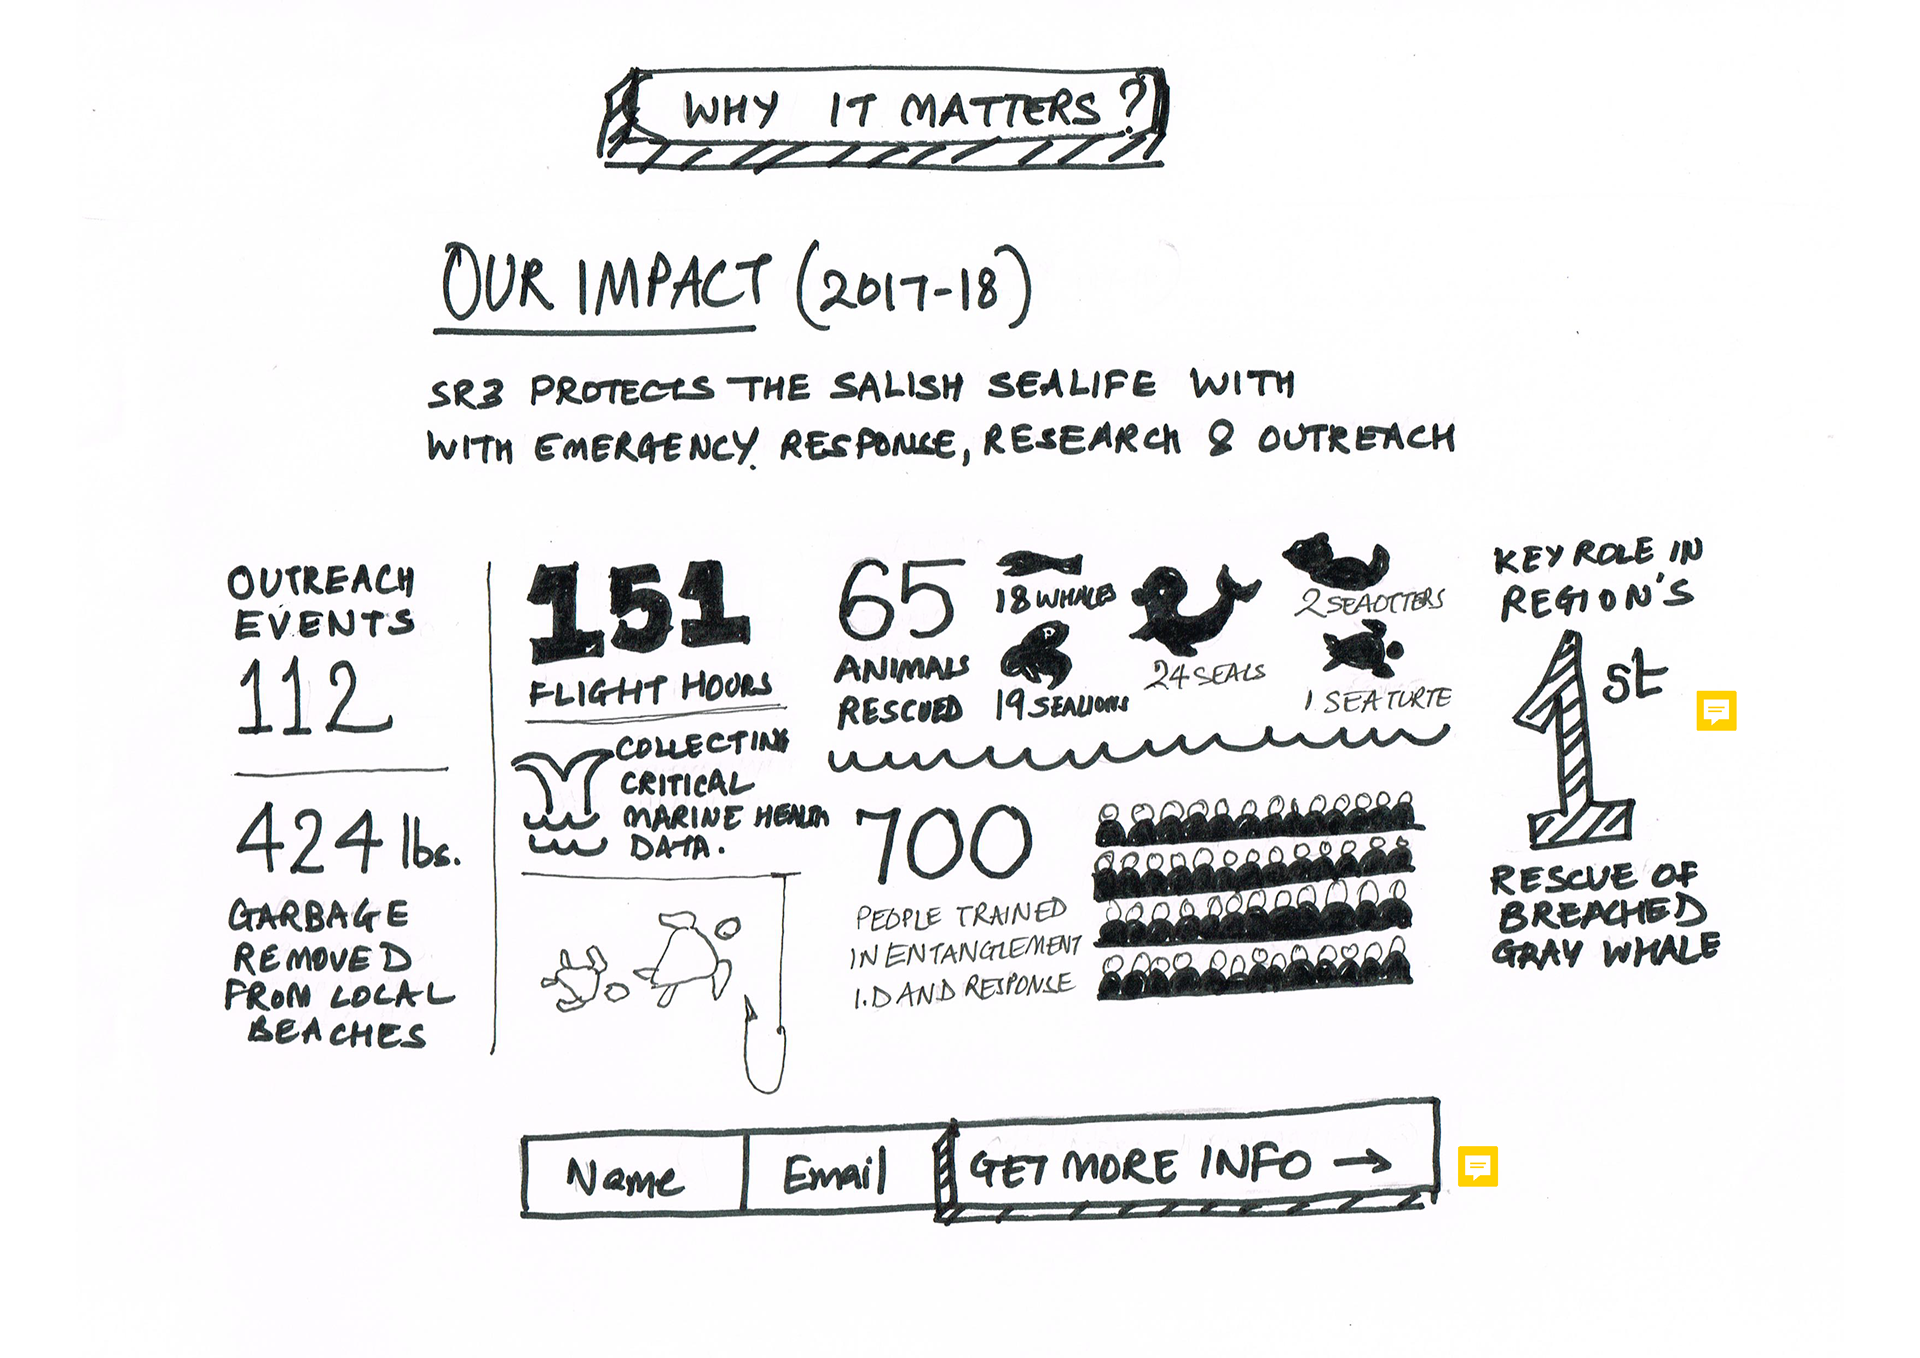 WHY IT MATTERS?
OUR IMPACT (2017-18)
SR3 PROTECTS THE SALISH SEALIFE WITH
WITH EMERGENCY. RESPONSE, RESEARCH & OUTREACH
OUTREACH
EVENTS
112
424 lbs.
GARBAGE
REMOVED
FROM LOCAL
BEACHES
151
FLIGHT HOURS
COLLECTING
CRITICAL
MARINE HEALTH
DATA.
65
ANIMALS
RESCUED
18 WHALES
19 SEALIONS
24 SEALS
2 SEAOTTERS
1 SEA TURTE
700
PEOPLE TRAINED
IN ENTANGLEMENT
I.D AND RESPONSE
KEY ROLE IN
REGION'S
1st
RESCUE OF
BREACHED
GRAY WHALE
Name
Email
GET MORE INFO →